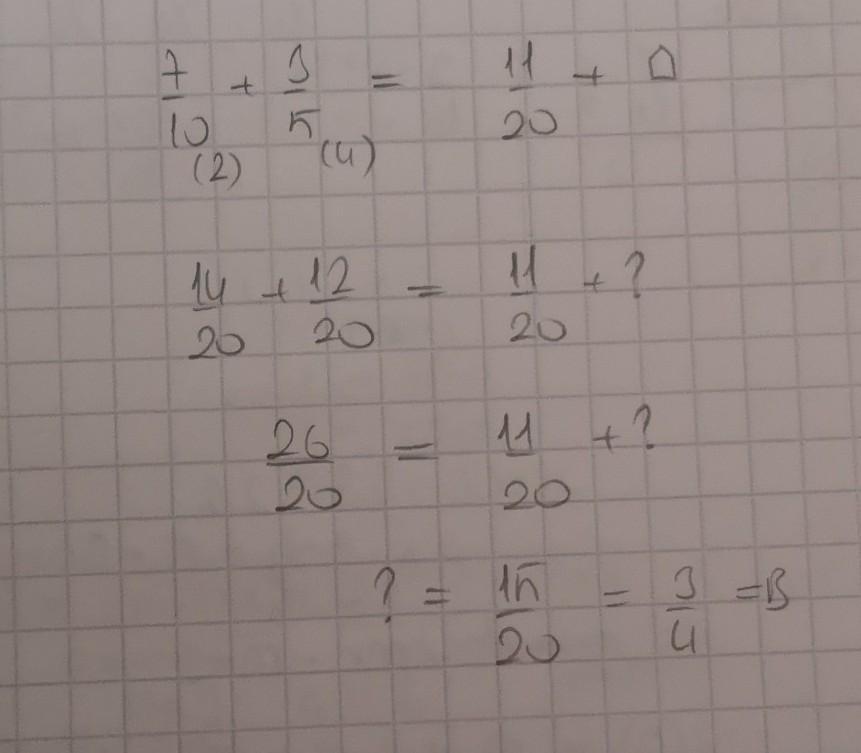 7/10 + 3/5 = 11/20 + □
(2) (4)
14/20 + 12/20 = 11/20 + ?
26/20 = 11/20 + ?
? = 15/20 = 3/4 = B